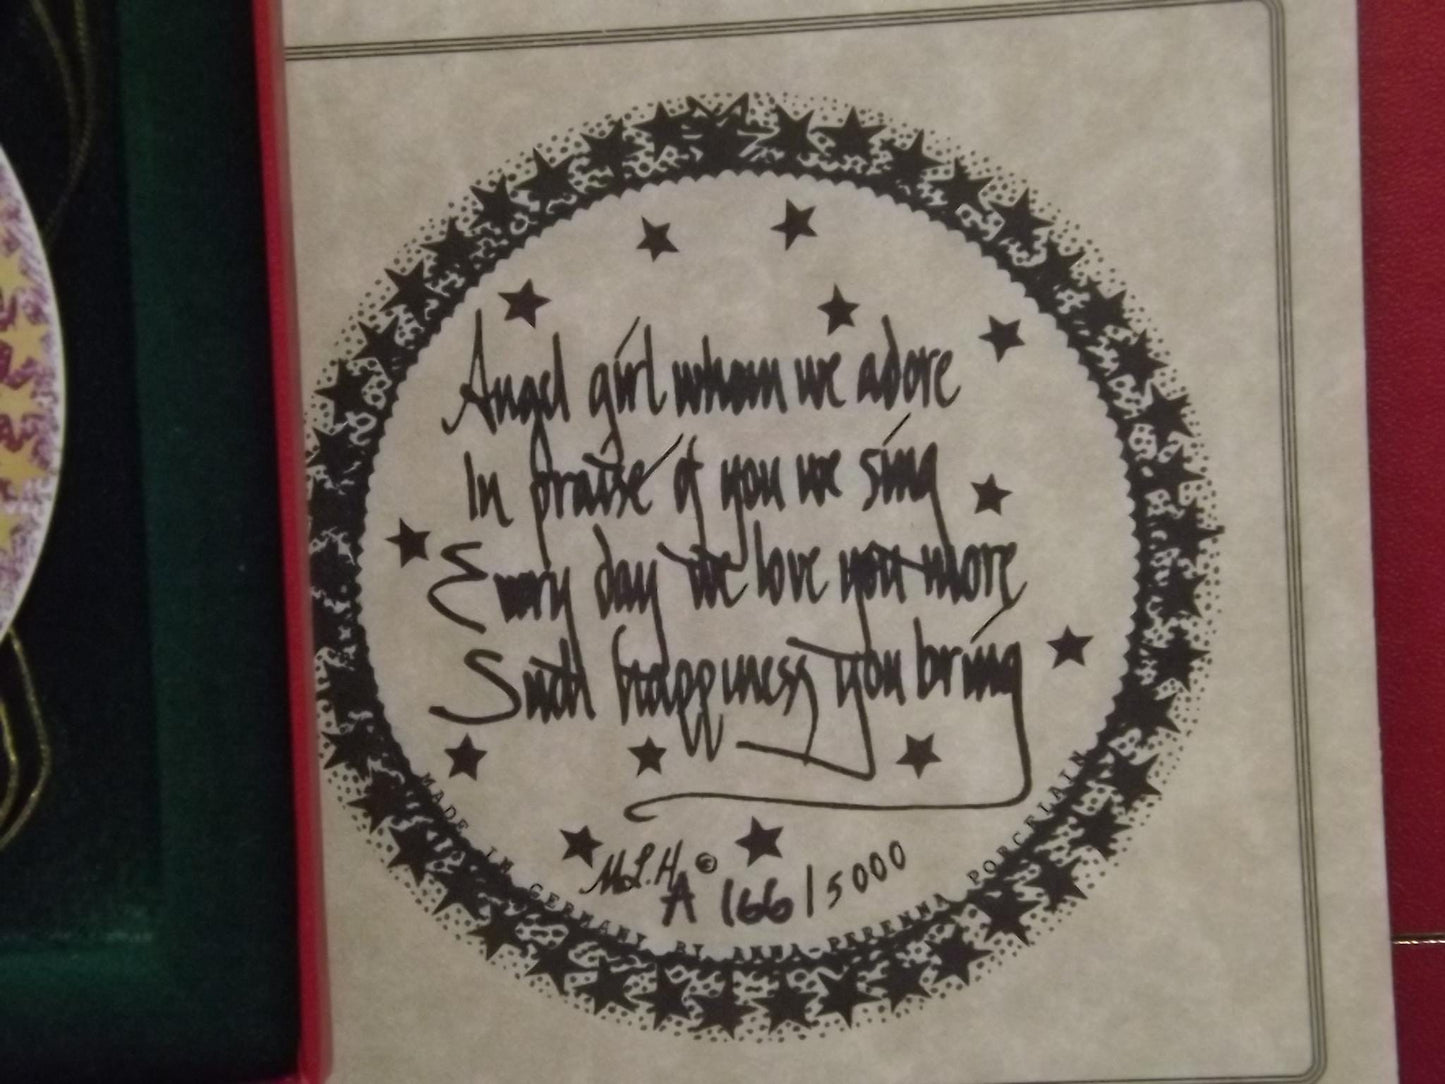 Angel girl whom we adore
In praise of you we sing
Every day we love you more
Such happiness you bring
M.L.H. ©
A 166/5000
MADE IN GERMANY BY ANNA PERENNA PORCELAIN